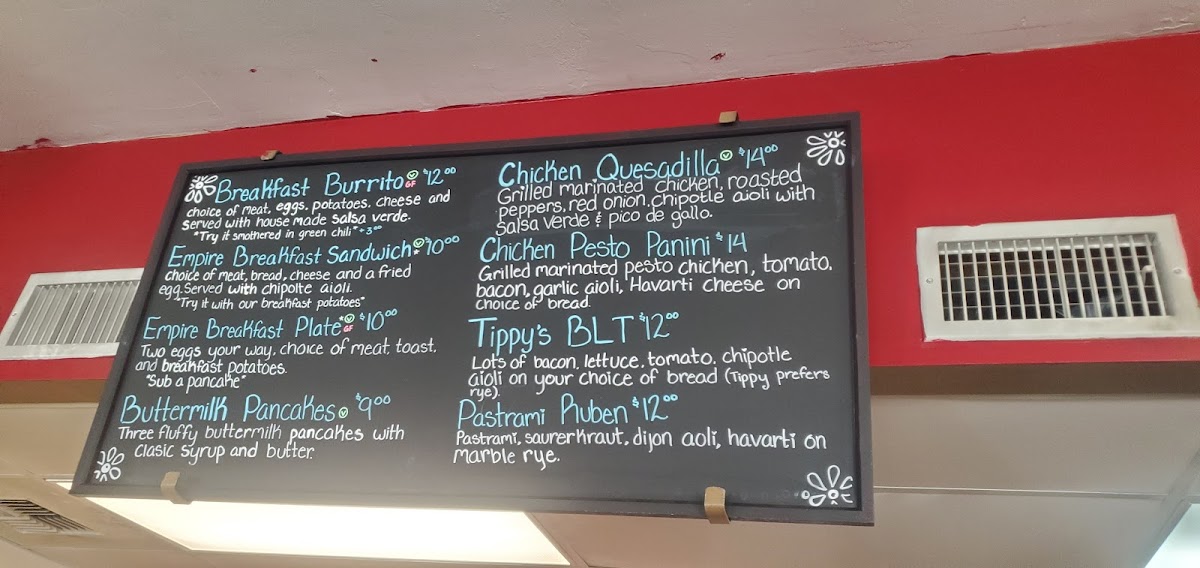 Breakfast Burrito V GF $12.00
choice of meat, eggs, potatoes, cheese and
served with house made salsa verde.
"Try it smothered in green chili" +3.00
Empire Breakfast Sandwich V $10.00
choice of meat, bread, cheese and a fried
egg. Served with chipolte aioli.
"Try it with our breakfast potatoes"
Empire Breakfast Plate V GF $10.00
Two eggs your way, choice of meat, toast,
and breakfast potatoes.
"Sub a pancake"
Buttermilk Pancakes V $9.00
Three fluffy buttermilk pancakes with
clasic syrup and butter.
Chicken Quesadilla V $14.00
Grilled marinated chicken, roasted
peppers, red onion, chipotle aioli with
salsa verde & pico de gallo.
Chicken Pesto Panini $14
Grilled marinated pesto chicken, tomato,
bacon, garlic aioli, Havarti cheese on
choice of bread.
Tippy's BLT $12.00
Lots of bacon, lettuce, tomato, chipotle
aioli on your choice of bread (Tippy prefers
rye).
Pastrami Ruben $12.00
Pastrami, saurerkraut, dijon aoli, havarti on
marble rye.